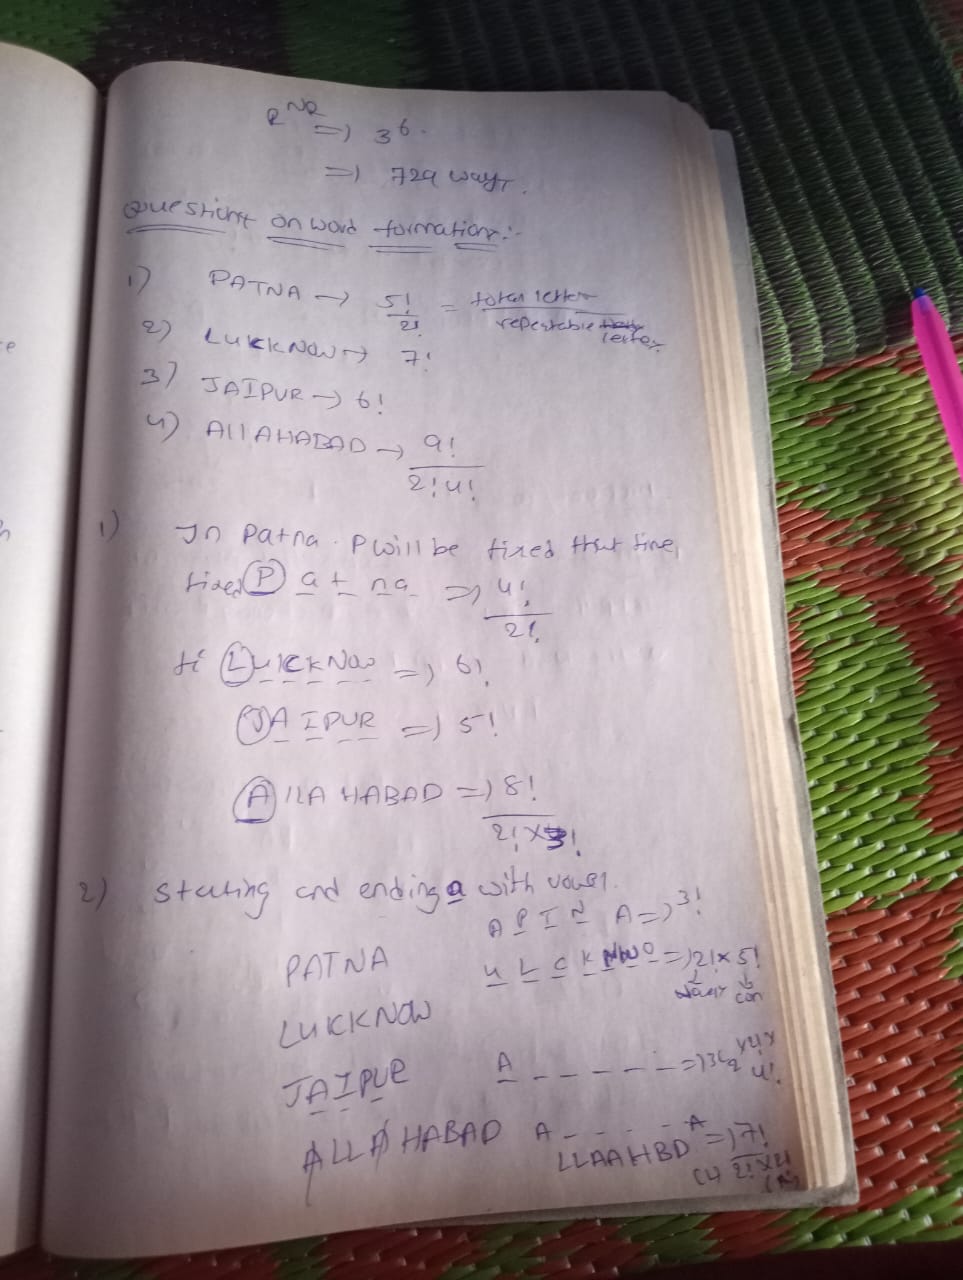 R^NR => 3^6.
=> 729 ways.
Questions on word formation:-
1) PATNA → 5!/2! = total letter/repeatable letter
2) LUCKNOW → 7!
3) JAIPUR → 6!
4) AllAHABAD → 9!/2!4!
1) In Patna. P will be fixed that time,
fixed P a t n a => 4!/2!
LUCKNOW => 6!
JAIPUR => 5!
AllA HABAD => 8!/2!x3!
2) starting and ending with vowel.
PATNA A P I N A => 3!
LUCKNOW U L C K N W O => 2! x 5!
vowel con
JAIPUR A - - - - - => 3C2 x 2! x 4!
ALLAHABAD A - - - - A => 7!/2! x 2!
LLAAHBD (L) (A)